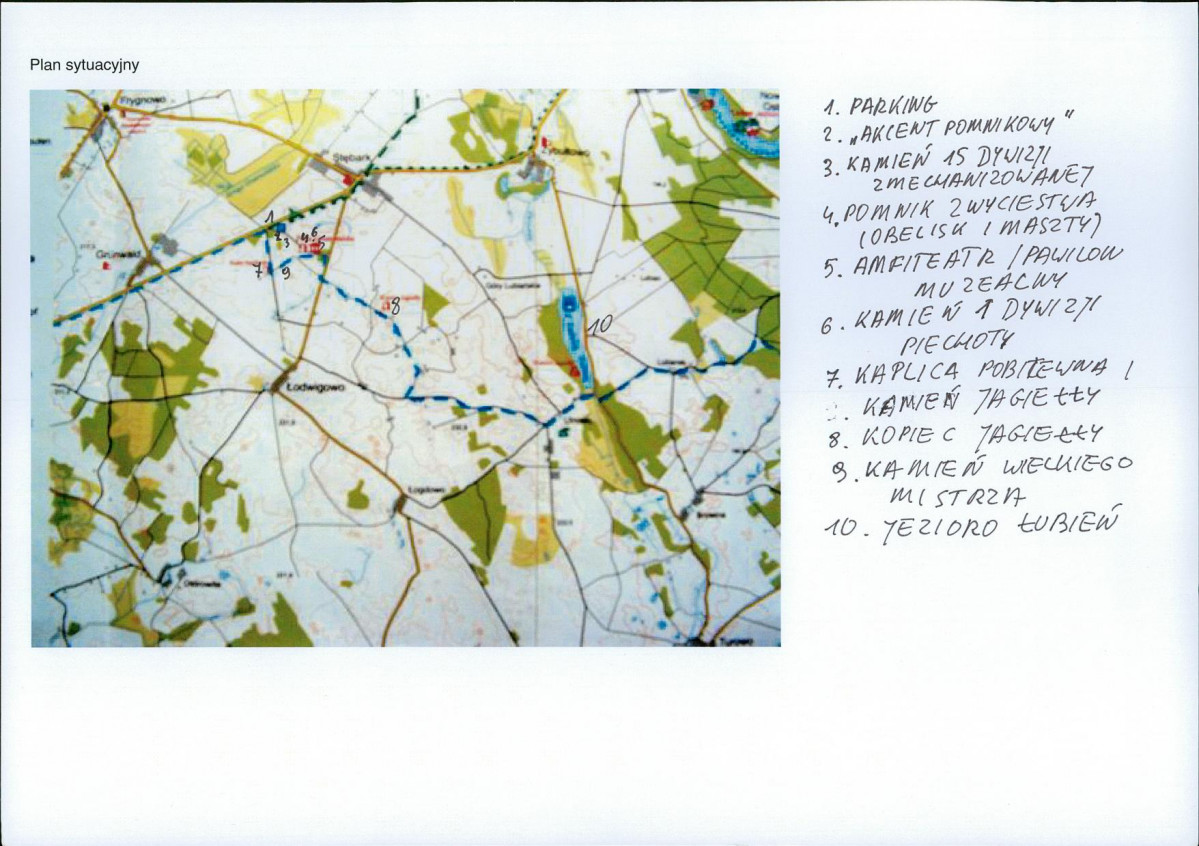 Plan sytuacyjny
Frygnowo
Stębark
Grünwald
Góry Lubiańskie
Łodwigowo
Łogdowo
Turowo
1
3
4.
6
5
7
9
8
10
1. PARKING
2. „AKCENT POMNIKOWY"
3. KAMIEŃ 15 DYWIZJI
ZMECHANIZOWANEJ
4. POMNIK ZWYCIĘSTWA
(OBELISK I MASZTY)
5. AMFITEATR / PAWILON
MUZEALNY
6. KAMIEŃ 1 DYWIZJI
PIECHOTY
7. KAPLICA POBITEWNA I
KAMIEŃ JAGIEŁŁY
8. KOPIEC JAGIEŁŁY
9. KAMIEŃ WIELKIEGO
MISTRZA
10. JEZIORO ŁUBIEŃ